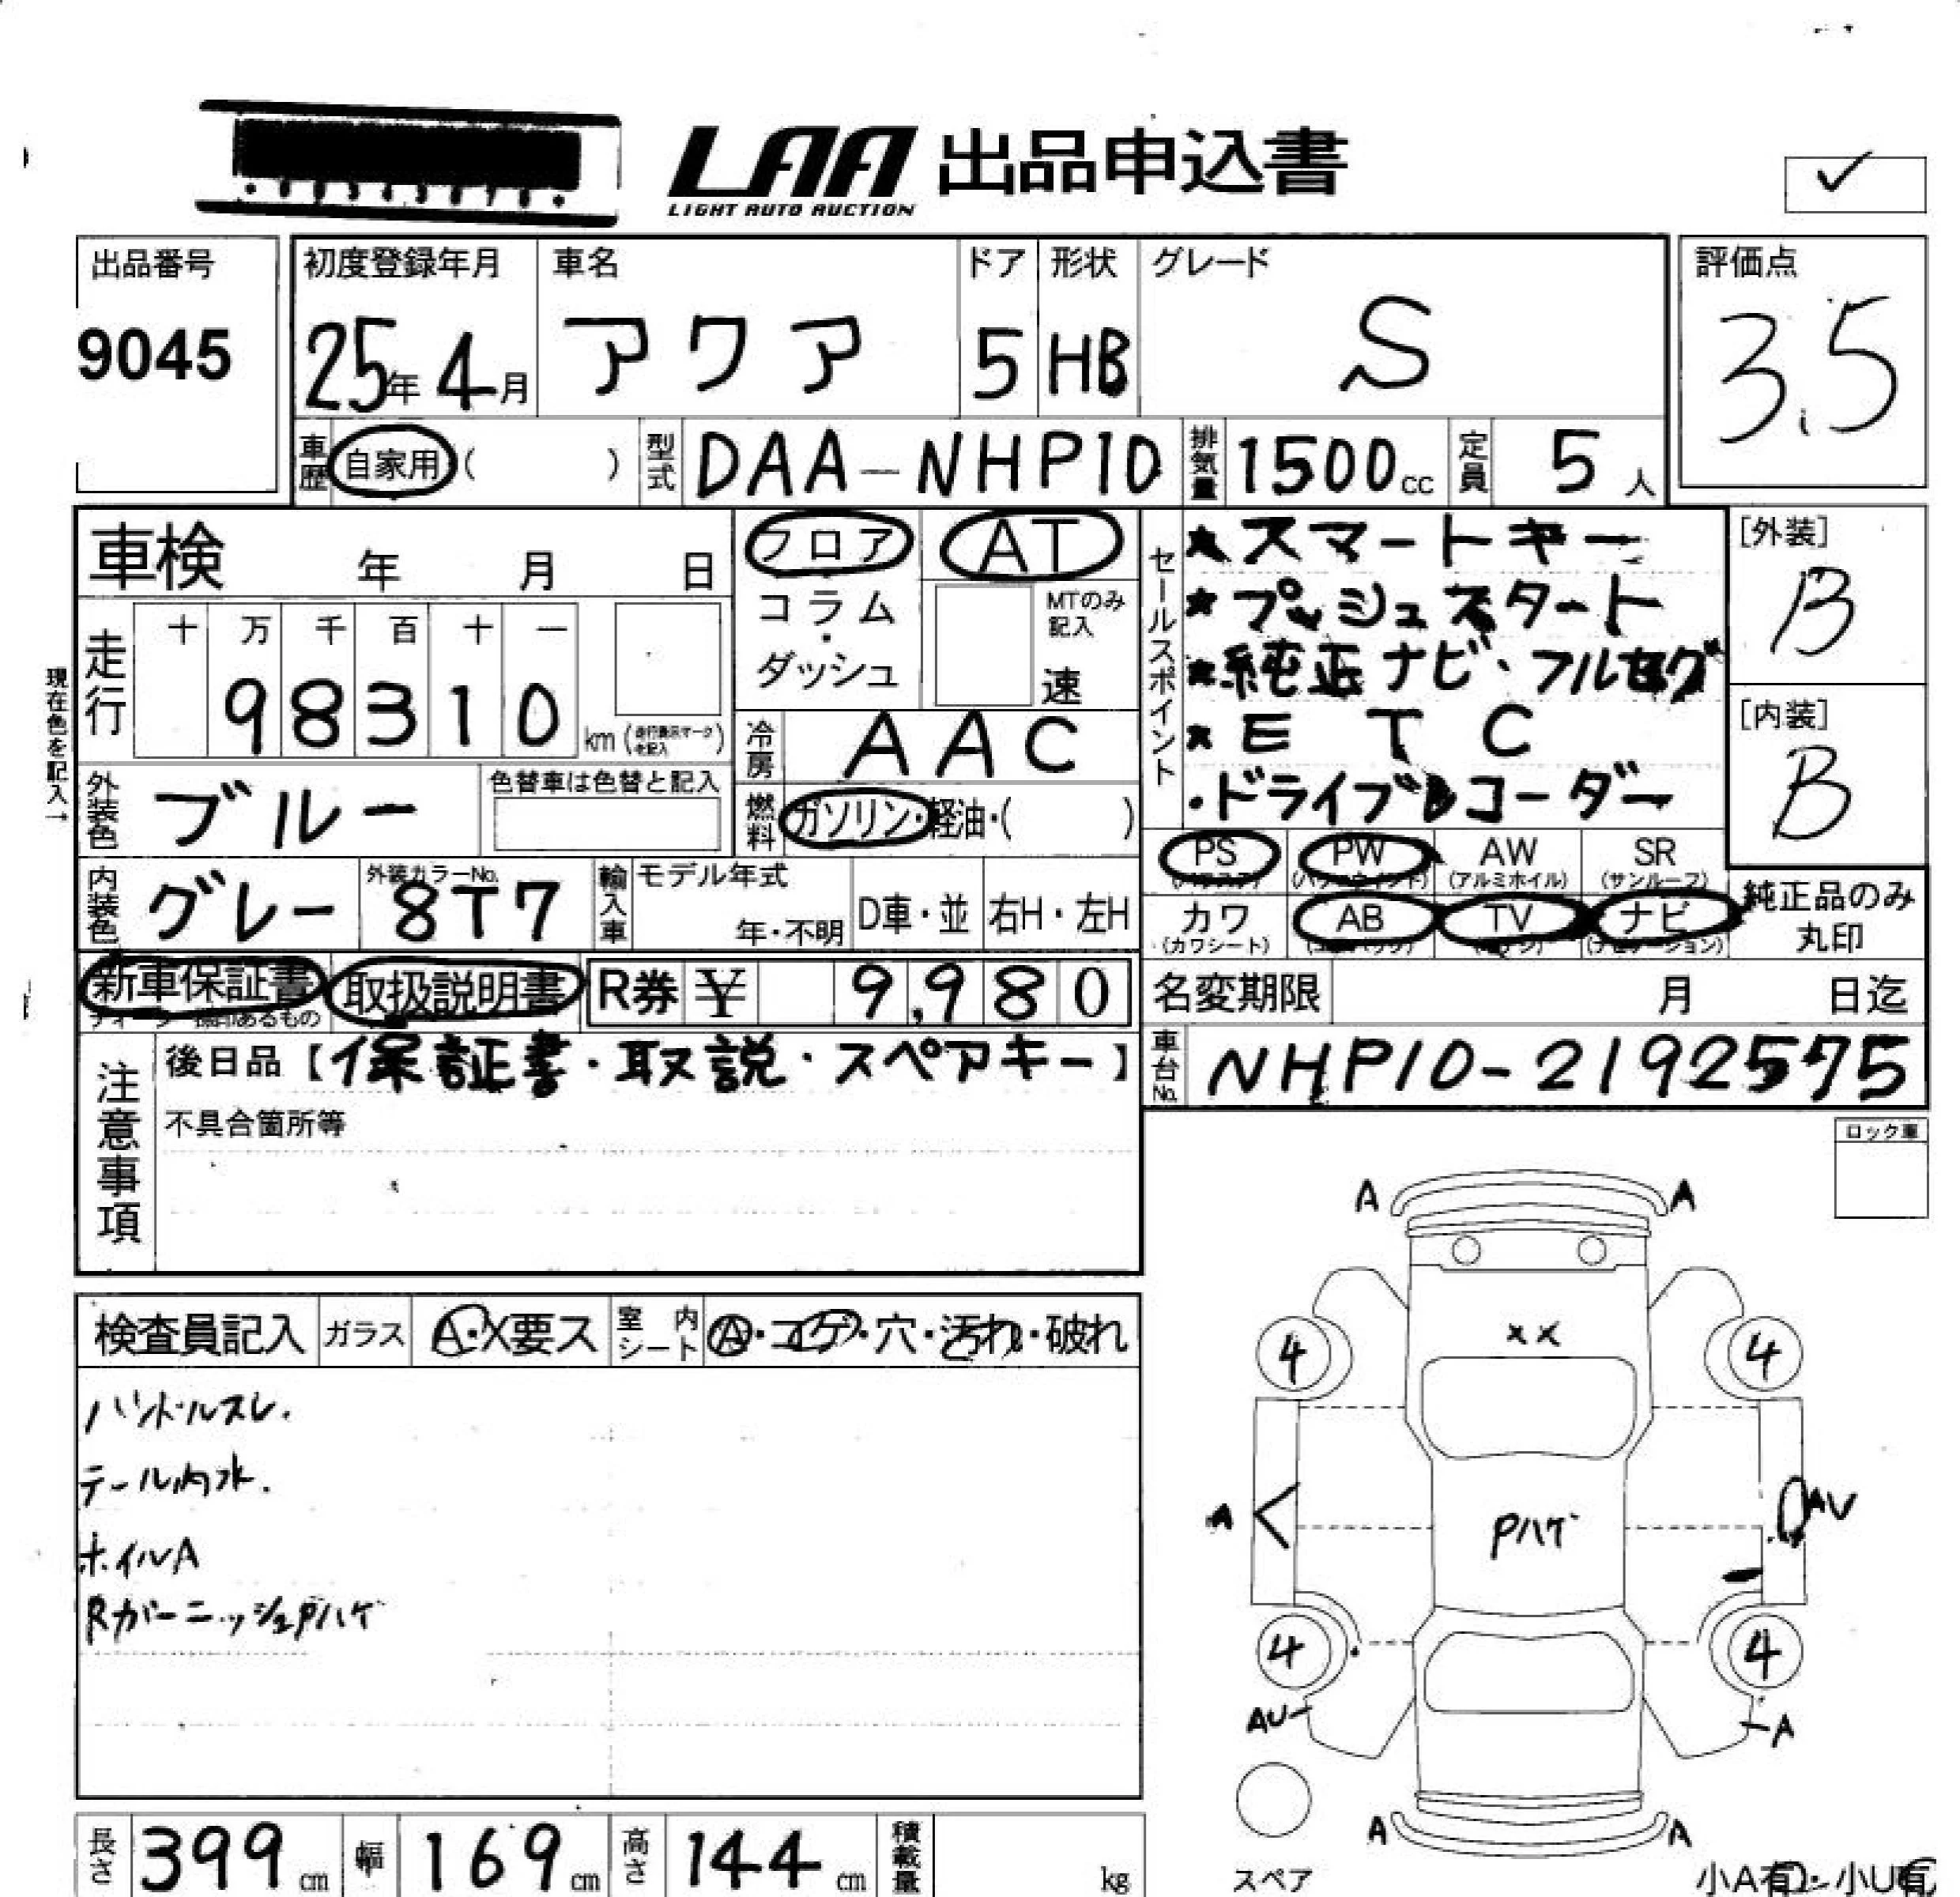 LAA 出品申込書
LIGHT AUTO AUCTION
出品番号
9045
初度登録年月
25年 4月
車名
アクア
ドア
5
形状
HB
グレード
S
評価点
3.5
車歴 自家用 ( )
型式 DAA-NHP10
排気量 1500cc
定員 5人
車検 年 月 日
現在色を記入→
走行
十 万 千 百 十 一
98310 km
フロア
コラム・ダッシュ
AT
MTのみ記入
速
冷房 AAC
燃料 ガソリン・軽油・( )
セールスポイント
★スマートキー
★プッシュスタート
★純正ナビ・フルセグ
★ETC
・ドライブレコーダー
[外装]
B
[内装]
B
外装色 ブルー
色替車は色替と記入
内装色 グレー
外装カラーNo.
8T7
輸入車
モデル年式
年・不明
D車・並
右H・左H
PS PW AW SR
(アルミホイル) (サンルーフ)
カワ AB TV ナビ
(カワシート)
純正品のみ丸印
新車保証書 取扱説明書
R券 ¥ 9,980
名変期限 月 日迄
車台No. NHP10-2192575
注意事項
後日品【保証書・取説・スペアキー】
不具合箇所等
ロック車
検査員記入 ガラス A・X要ス 室内シート A・コゲ・穴・汚れ・破れ
ハンドルスレ.
テール内水.
ホイルA
RガーニッシュPハゲ
A A
XX
4 4
A AV
Pハゲ
4 4
AU A
A A
スペア
小A有・小U有
長さ 399cm 幅 169cm 高さ 144cm 積載量 kg